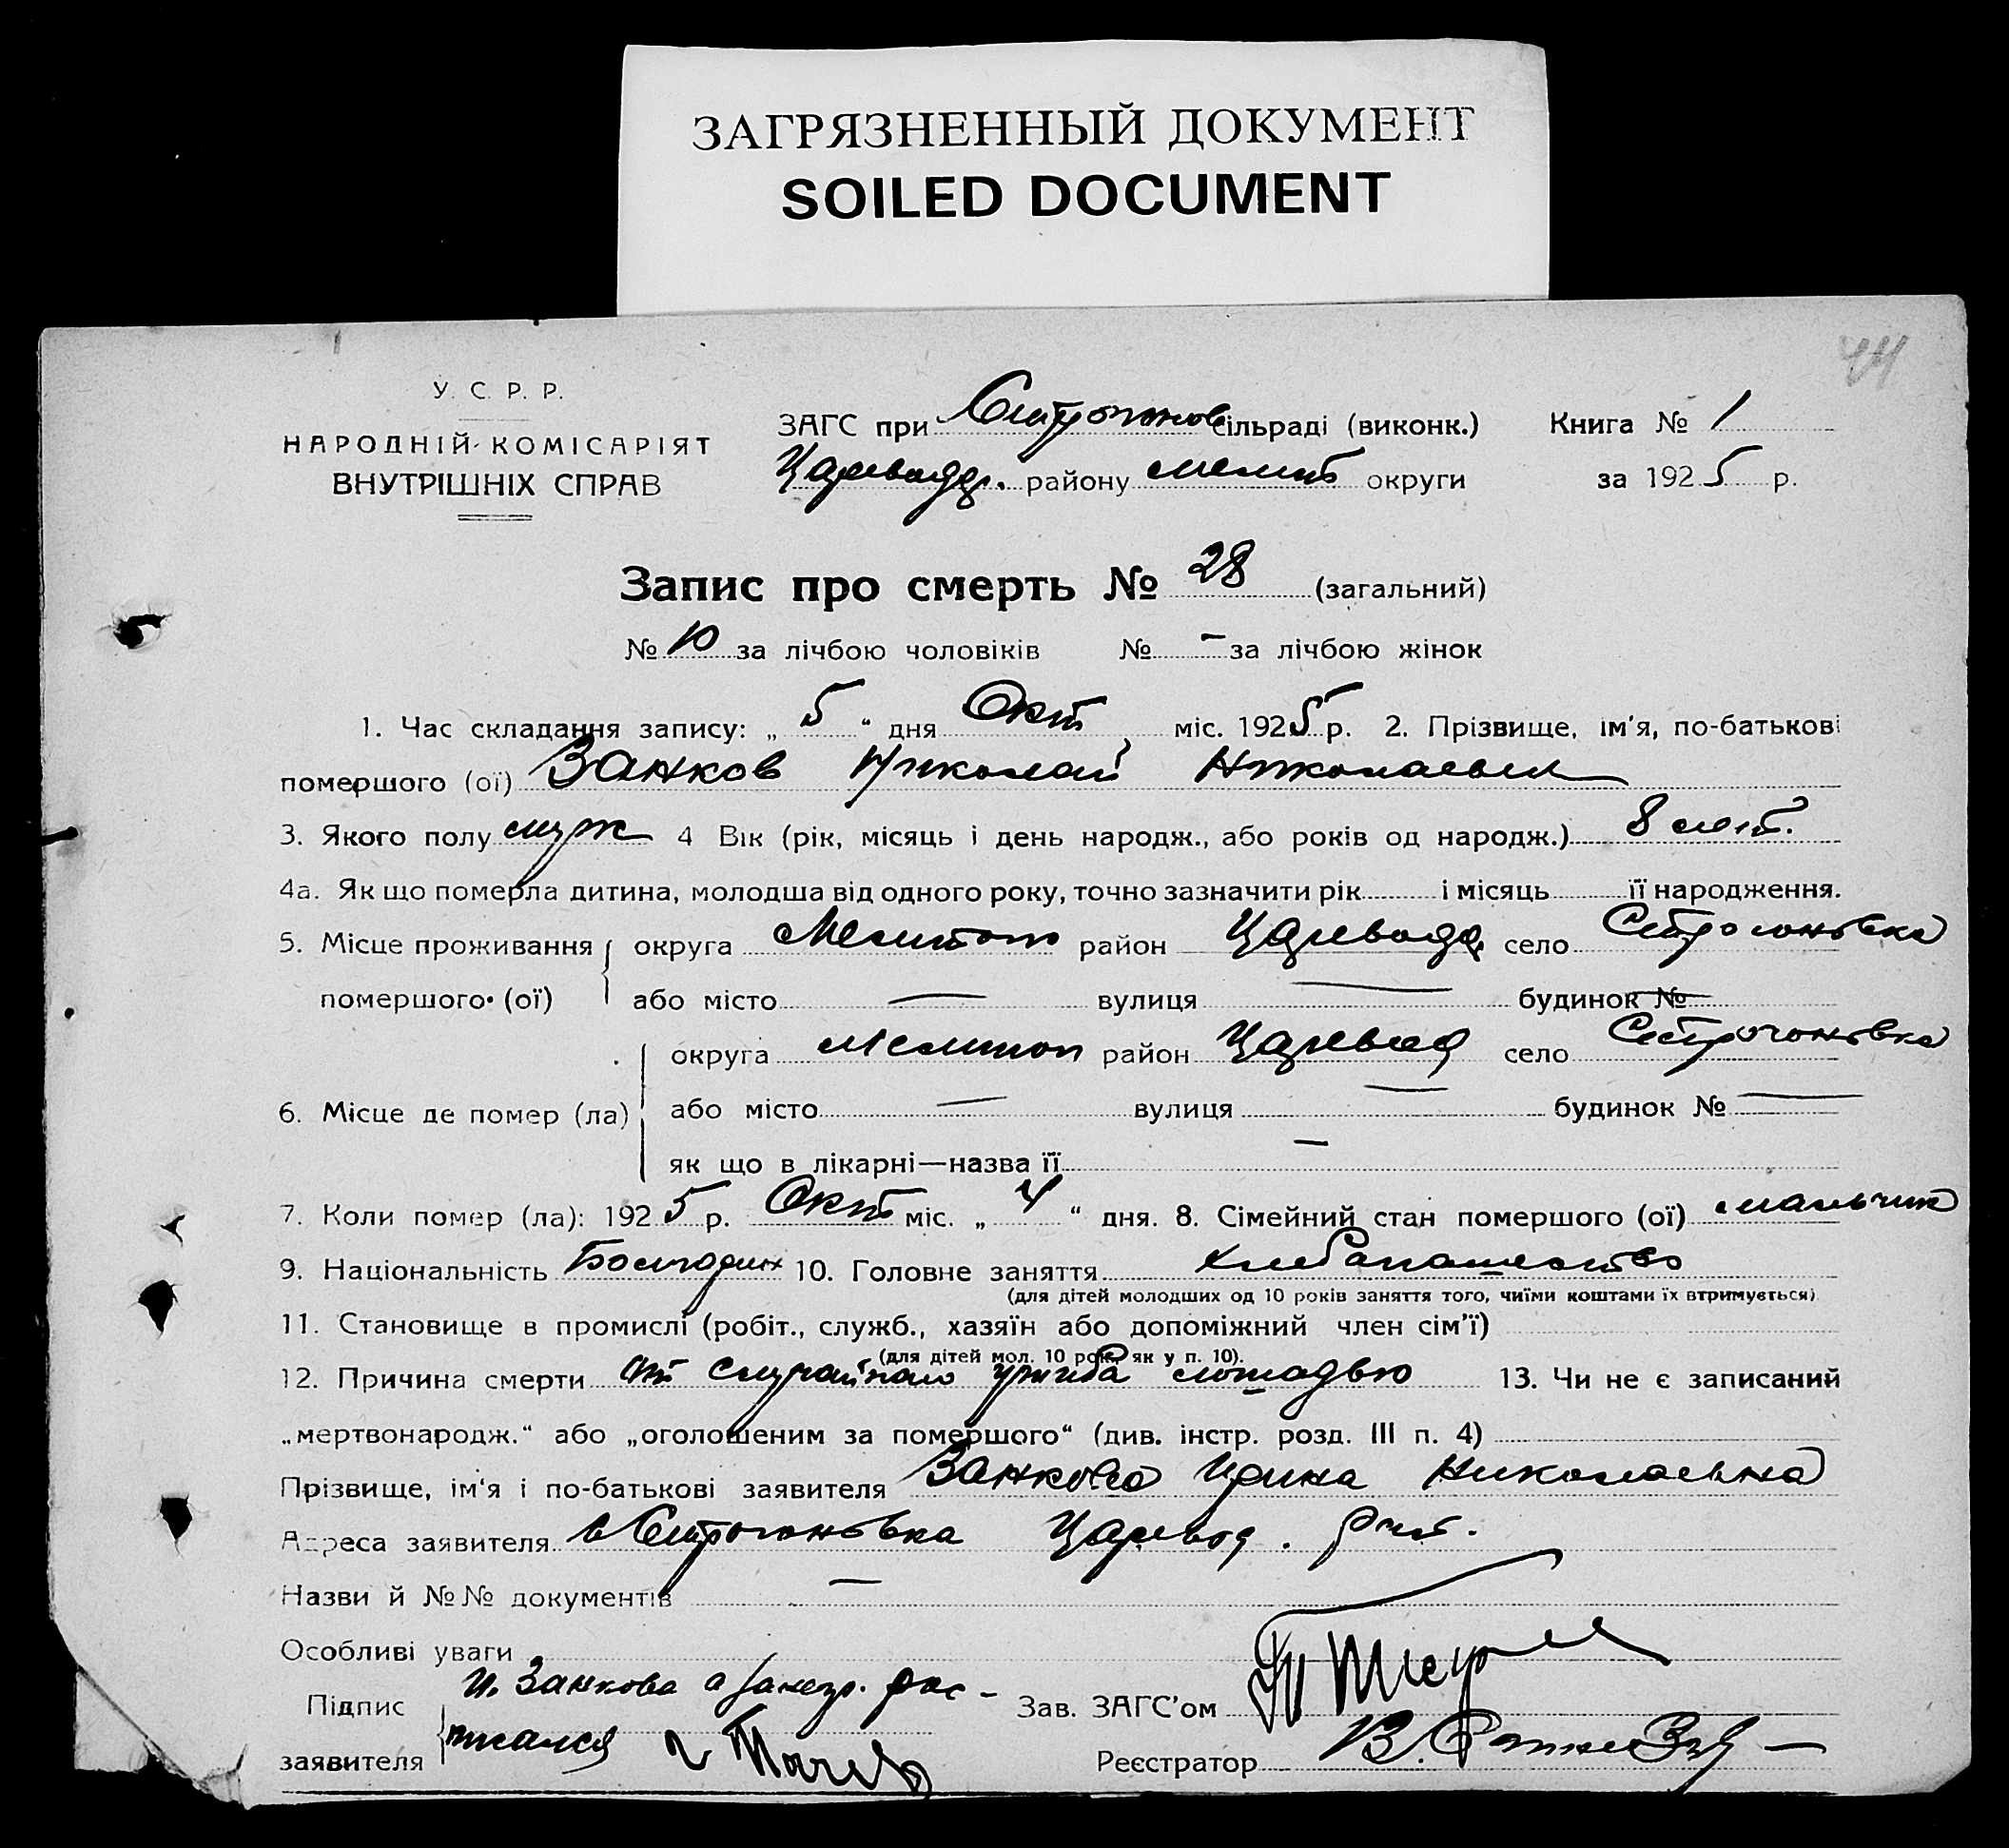 ЗАГРЯЗНЕННЫЙ ДОКУМЕНТ
SOILED DOCUMENT
44
У. С. Р. Р.
НАРОДНІЙ КОМІСАРІЯТ
ВНУТРІШНІХ СПРАВ
ЗАГС при Строгонов сільраді (виконк.)
Цареводар. району Мелит округи
Книга № 1
за 1925 р.
Запис про смерть № 28 (загальний)
№ 10 за лічбою чоловіків № – за лічбою жінок
1. Час складання запису: „ 5 “ дня Окт міс. 1925 р. 2. Прізвище, ім'я, по-батькові
помершого (ої) Занков Николай Николаевич
3. Якого полу муж 4 Вік (рік, місяць і день народж., або років од народж.) 8 лет.
4а. Як що померла дитина, молодша від одного року, точно зазначити рік і місяць її народження.
5. Місце проживання округа Мелитоп район Царевод село Строгоновка
помершого (ої) або місто — вулиця — будинок №
6. Місце де помер (ла) округа Мелитоп район Царевод село Строгоновка
або місто — вулиця — будинок № —
як що в лікарні—назва її —
7. Коли помер (ла): 1925 р. Окт міс. „ 4 “ дня. 8. Сімейний стан помершого (ої) мальчик
9. Національність Болгарин 10. Головне заняття хлебопашество
(для дітей молодших од 10 років заняття того, чиїми коштами їх втримується)
11. Становище в промислі (робіт., служб., хазяїн або допоміжний член сім'ї)
(для дітей мол. 10 рок., як у п. 10).
12. Причина смерти от случайнаго ушиба лошадью 13. Чи не є записаний
„мертвонародж.“ або „оголошеним за помершого“ (див. інстр. розд. III п. 4)
Прізвище, ім'я і по-батькові заявителя Занкова Ирина Николаевна
Адреса заявителя с Строгоновка Царевод.
Назви й №№ документів —
Особливі уваги
Підпис заявителя И. Занкова а за негр. рас-
писался
Зав. ЗАГС'ом
Реєстратор В.